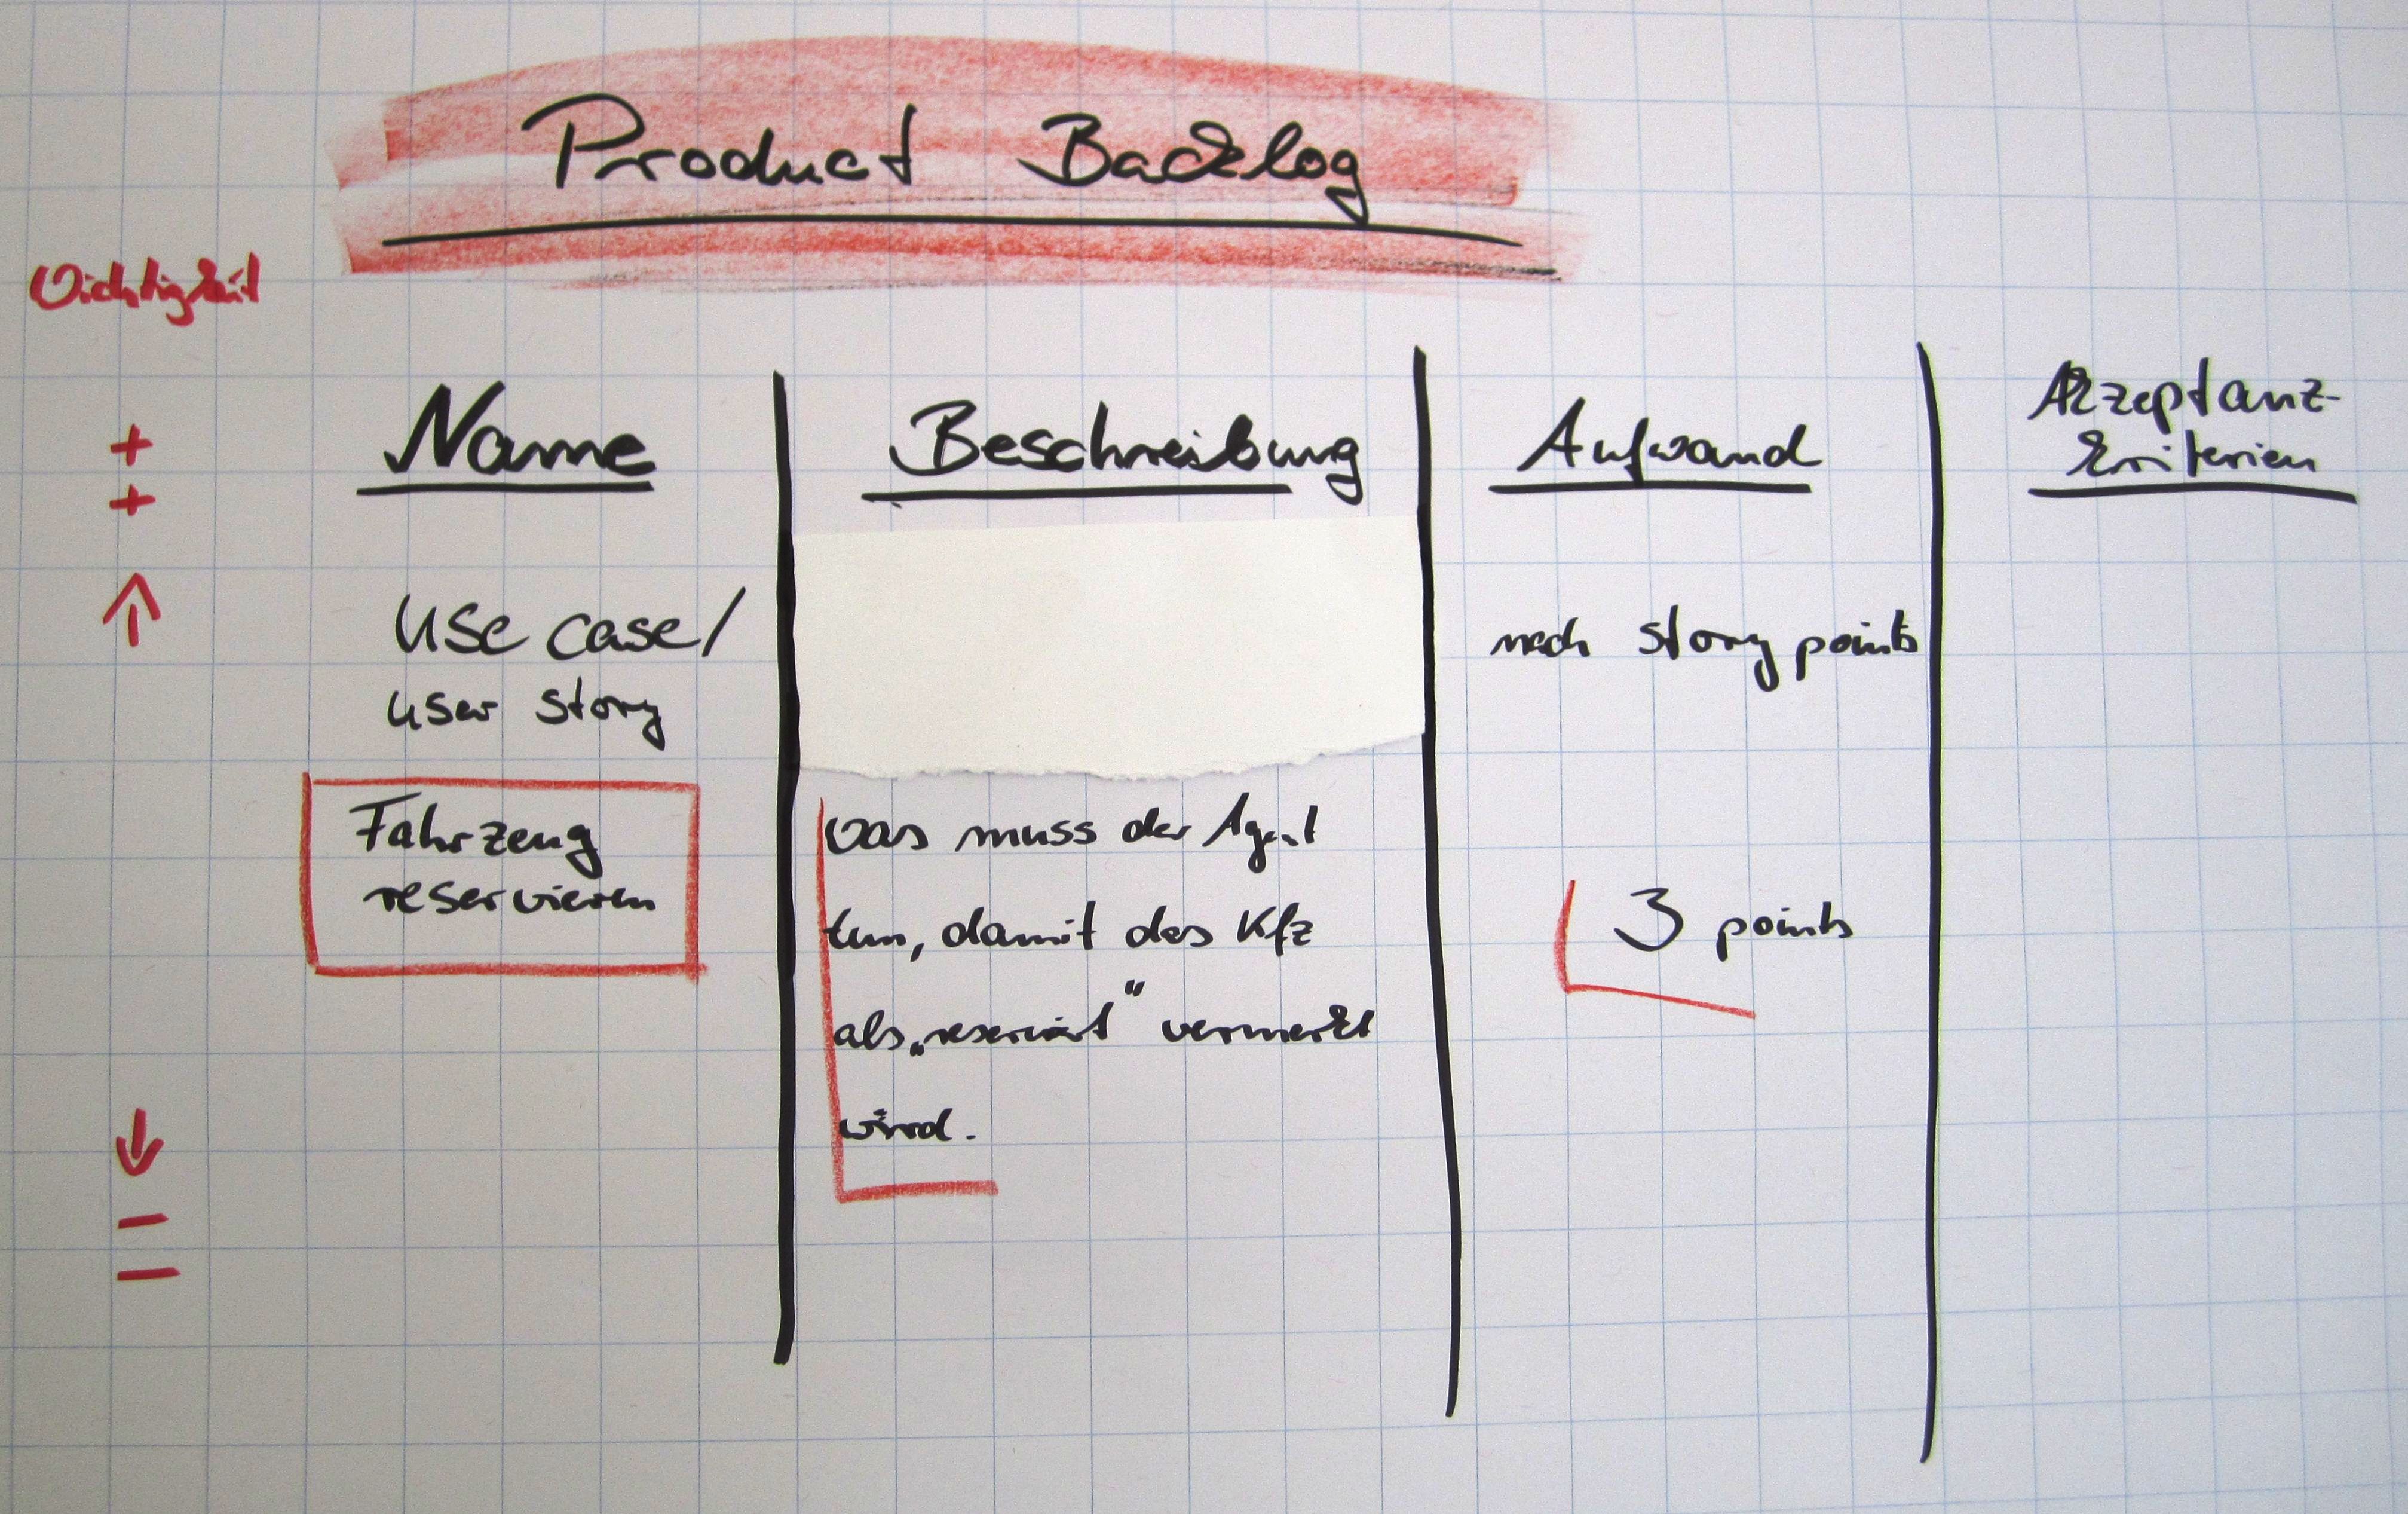 Product Backlog
Wichtigkeit
+
+
↑
↓
–
–
Name
Use case/
user story
Fahrzeug
reservieren
Beschreibung
Was muss der Agent
tun, damit das Kfz
als „reserviert“ vermerkt
wird.
Aufwand
nach story points
3 points
Akzeptanz-
kriterien